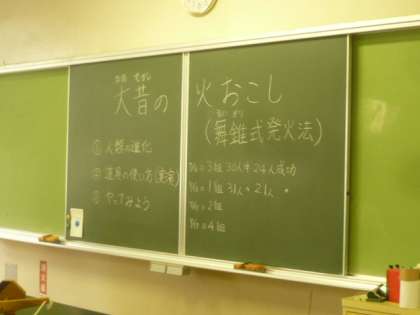 おお むかし
大昔の 火おこし
まい きり
(舞錐式発火法)
① 人類の進化
② 道具の使い方(実演)
③ やってみよう
3組 30人中 24人成功
1組 31人中 21人 〃
2組
4組